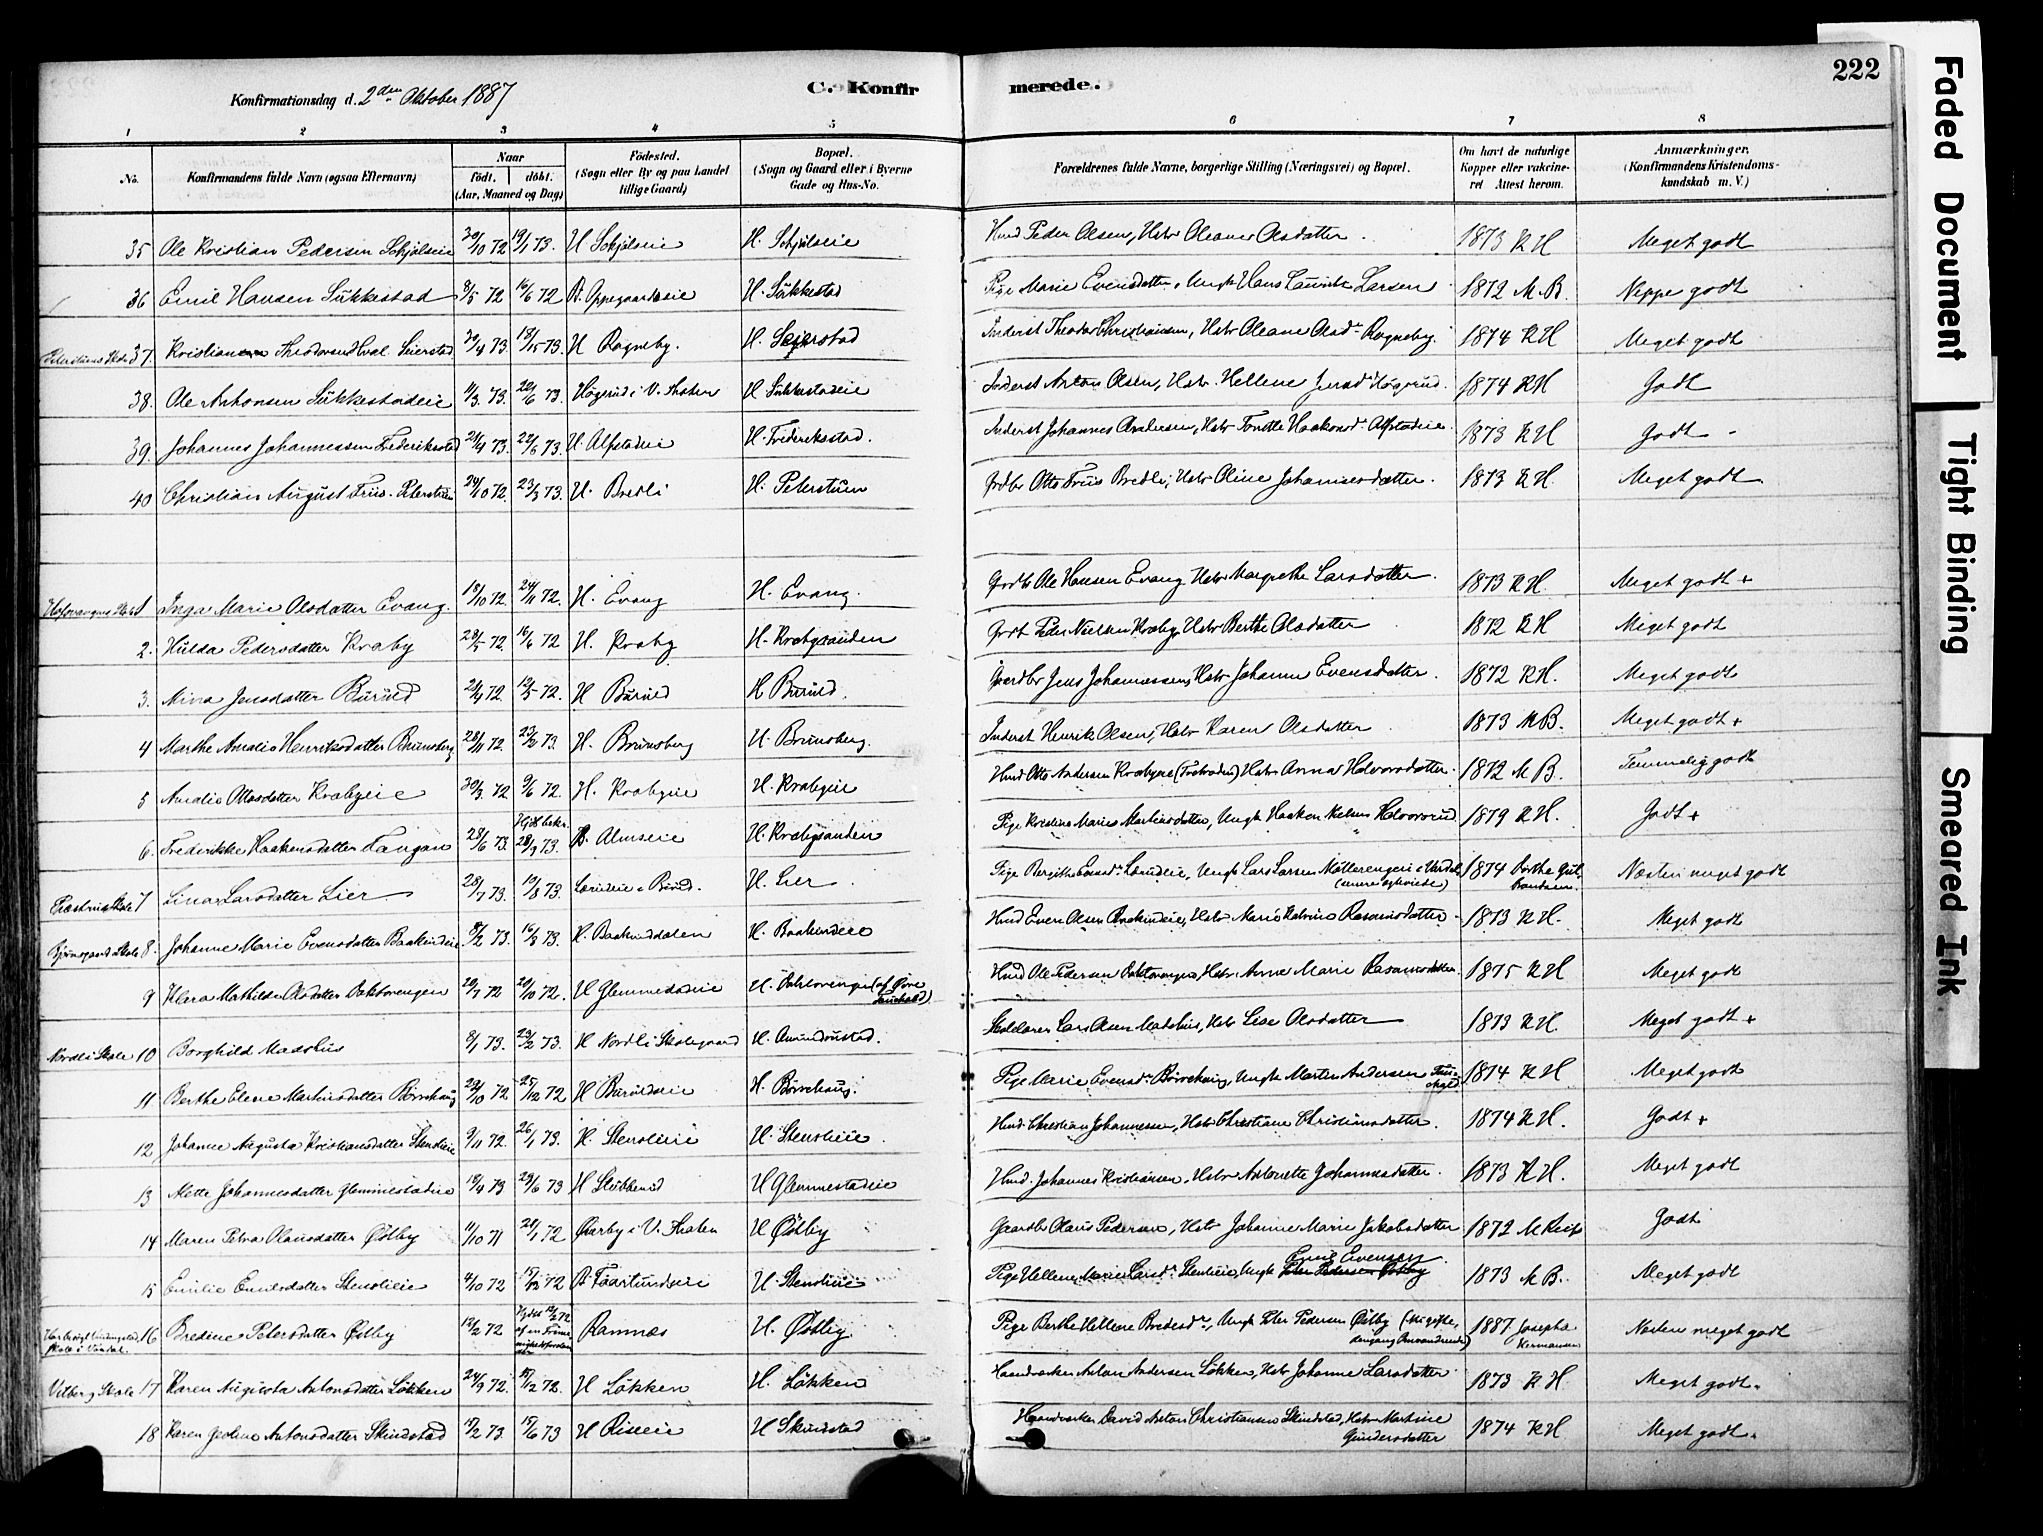 222
Konfirmationsdag d. 2den Oktober 1887
C. Konfirmerede.
1 2 3 4 5 6 7 8
No. Konfirmandens fulde Navn (ogsaa Efternavn) Naar født. døbt. (Aar, Maaned og Dag) Fødested. (Sogn eller By og paa Landet tillige Gaard) Bopæl. (Sogn og Gaard eller i Byerne Gade og Hus-No. Forældrenes fulde Navne, borgerlige Stilling (Næringsvei) og Bopæl. Om havt de naturlige Kopper eller vakcineret Attest herom. Anmærkninger. (Konfirmandens Kristendomskundskab m. V.)
35 Ole Kristian Pedersen 30/10 72 19/1 73. H H. Husd Peder Olsen, Hstr Oleane Olsdatter. 1873 KH Meget godt
36 Emil Hansen Sükkestad 8/5 72 16/6 72 H. Sükkestad Pige Marie Evensdatter, Ungk Hans Laurits Larsen 1872 M.B. Neppe godt
37. Theodorsen Seierstad 30/4 73 73. H Rogneby. H. Seierstad Inderst Theodor Christiansen, Hstr Oleane Olsdr Rogneby. 1874 KH Meget godt
38. Ole Antonsen Sükkestadeie 11/3 73. 22/6 73. Høgerud i V. Thoten H. Sukkestadeie Inderst Anton Olsen, Hstr. Hellene Høgerud. 1874 KH Godt
39. Johannes Johannessen Frederiksstad 24/4 73. 22/6 73. H Alfstadeie H. Frederiksstad. Inderst Johannes Hstr Haakonsdr Alfstadeie. 1873 KH Godt
40 Christian August Friis. Peterstuen 24/10 72. 23/3 73. H. Bredli H. Peterstuen Grdbr Otto Friis Bredli, Hstr Oline Johannesdatter. 1873 KH. Meget godt
1 Inga Marie Olsdatter Evang. 18/10 72. 24/11 72. H. Evang H. Evang. Grdbr Ole Hansen Evang Hstr Margrethe Larsdatter. 1873 KH. Meget godt +
2. Hilda Pedersdatter Kraby 28/5 72. 16/6 72 H. Kraby H. Krabysanden Peder Nielsen Kraby, Hstr Berthe Olsdatter 1872 KH Meget godt
3. Mina Jensdatter Burud 21/4 72 12/5 72. H Burud H Burud. Gaardbr Jens Johannessen, Hstr Johanne Evensdatter. 1872 KH. Meget godt
4 Marthe Amalie Henriksdatter Brunsberg 28/11 72 23/2 73. H. Brunsberg H. Brunsberg. Inderst Henrik Olsen, Hstr Karen Olsdatter 1873 MB. Meget godt +
5 Amalie Ottosdatter Krabyeie 30/3. 72 9/6 72 H. Krabyeie H. Krabyeie Husd Otto Andersen Krabyeie Hstr Anna Halvorsdatter. 1872 M B. Temmelig godt
6. Frederikke Haakensdatter Tangen 28/6 73. 73. Almseie H. Krabysanden Pige Kristine Marie Martinsdatter, Ungk Haaken Nielsen Halvorsrud 1879 KH. Godt +
7 Lina Larsdatter Lier 28/7 73. 19/8 73. H. Lier Pige Bergithe Evensdr Ungk Lars Larsen 1874 Berthe Næsten meget godt
8 Johanne Marie Evensdatter Baakindeie 8/2 73. 16/3 73. H. Baakinddalen H. Baakindeie Husd Even Olsen Baakindeie, Hstr Marie Katrine Rasmusdatter 1873 KH. Meget godt
9 Klara Mathilde Olsdatter Doktorengen 20/7 72 20/10 72. H Glemmestadeie H. Doktorengen (af Øvre Husd Ole Pedersen Doktorengen, Hstr Anne Marie Rasmusdatter. 1875 KH Meget godt
Nordli Skole 10 Borghild Madshus 8/1 73. 23/2 73. H Nordli Skolegaard H. Amundrustad. Skolelærer Lars Olsen Madshus, Hstr Lise Olsdatter 1873 KH. Meget godt +
11 Berthe Elene Martinsdatter Børvehaug 22/10 72 25/12 72 H Burudseie H. Børvehaug. Pige Marie Evensdr Børvehaug, Ungk Martin Andersen 1874 KH Meget godt
12 Johanne Augusta Kristiansdatter Stensleie 9/11 72. 26/1 73. H. Stensleie H. Stensleie. Husd. Christian Johannessen, Hstr Christiane Christiansdatter. 1874 KH. Godt +
13 Mette Johannesdatter Glemmestadeie 19/4 73 29/6 73 H H Glemmestadeie Husd. Johannes Kristiansen, Hstr Antonette Johannesdatter. 1873 KH. Meget godt
14 Maren Petra Olausdatter Østby 11/10 71 21/1 72 i V. Thoten H Østby Gaardbr Olaus Pedersen, Hstr Johanne Marie Jakobsdatter 1872 M Godt
15 Emilie Emilsdatter Stensleie 4/10 72 72 H. Stensleie Pige Hellene Marie Larsdr Stensleie, Ungk Peter Pedersen Østby Emil Evensen 1873 M B. Meget godt
16 Bredine Petersdatter Østby 12/2 72 Ramnes H. Østby Pige Berthe Hellene Ungk Peter Pedersen Østby 1887 Josepha Hermansen Næsten meget godt
Vitberg Skole 17 Karen Augusta Antonsdatter Løkken 24/9 72. 72. H Løkken H. Løkken Haandværker Anton Andersen Løkken, Hstr Johanne Larsdatter 1873 KH. Meget godt.
18 Karen Antonsdatter Skindstad 17/2 73. 15/6 73 H Riseeie H Skindstad Haandværker David Anton Christiansen Skindstad, Hstr Martine Gundersdatter 1874 KH Meget godt.
Faded Document
Tight Binding
Smeared Ink